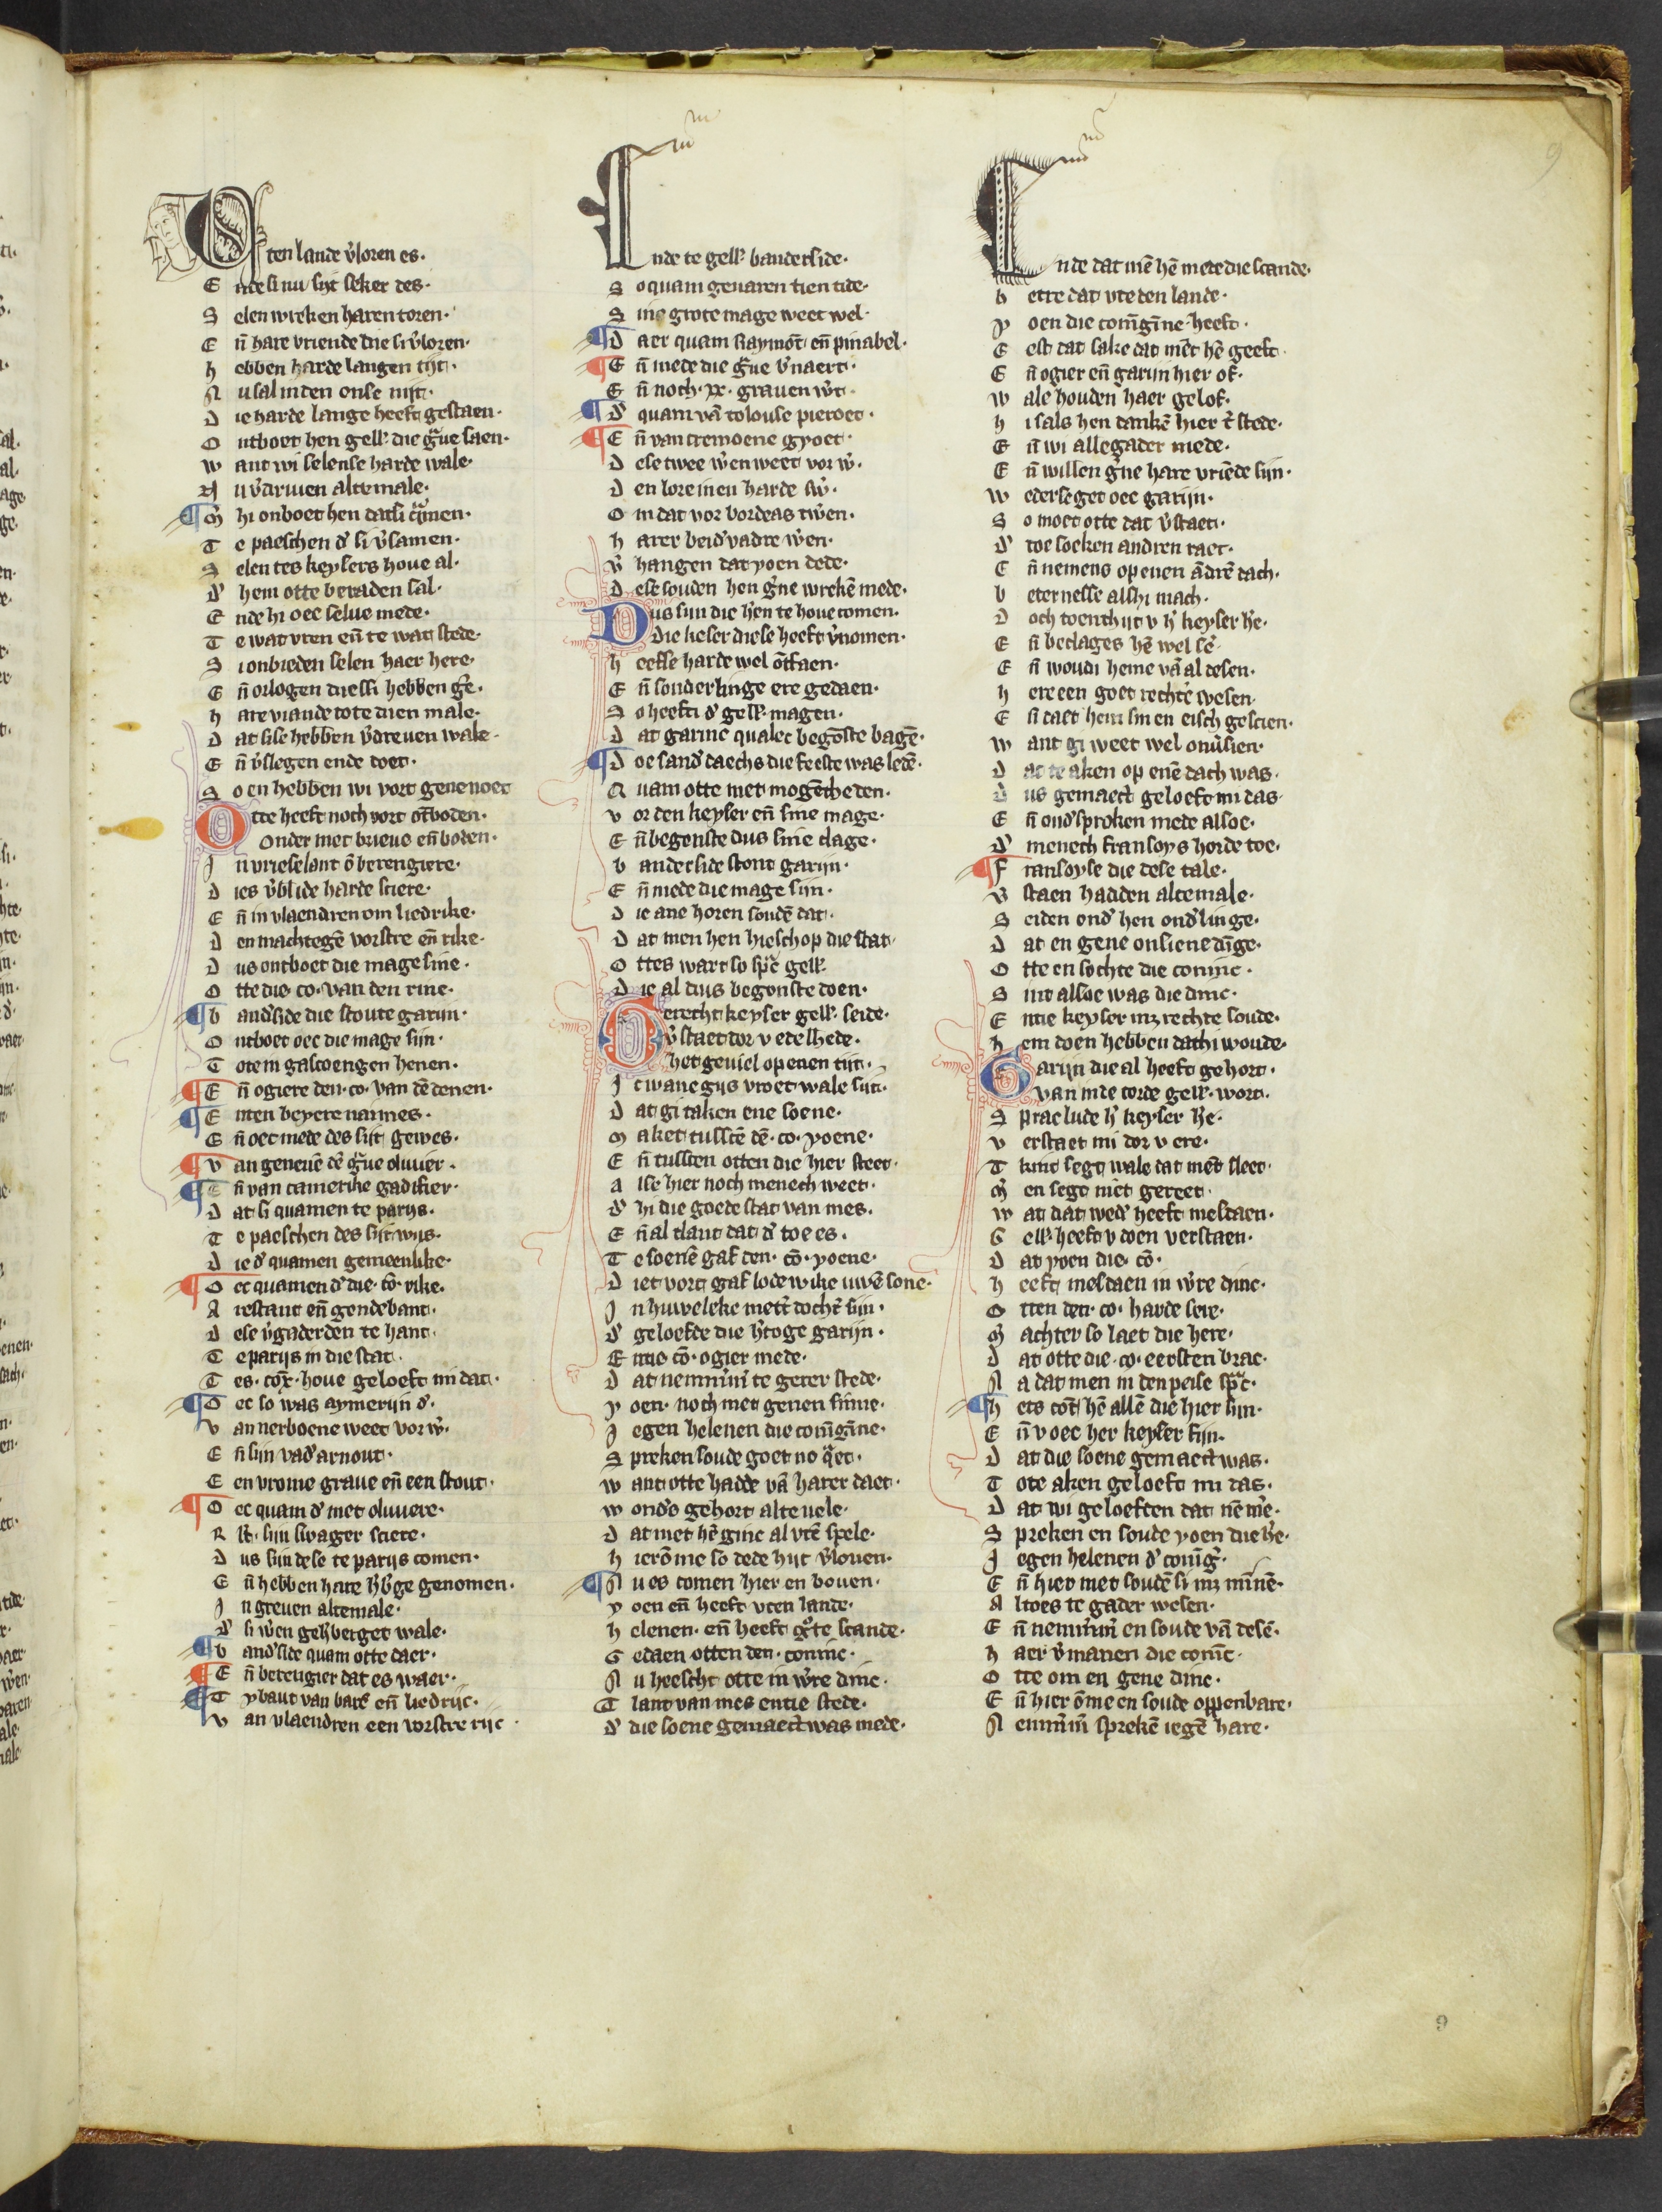 9
Otten lande v̓loren es.
Ende si nu sijt seker des.
Selen wreken haren toren.
En̄ hare vriende die si v̓loren.
hebben harde langen tijt.
Nu sal inden onse nijt.
Die harde lange heeft gestaen.
Ontboet hen gell̓. die g̓ue saen.
want wi selense harde wale.
Nu v̓driuen altemale.
M̓ hi onboet hen datsi q̓men.
Te paeschen d̓ si v̓samen.
Selen tes keysers houe al.
d̓ hem otte beraden sal.
Ende hi oec selue mede.
Te wat vren en̄ te wat stede.
Si onbieden selen haer here.
En̄ orlogen die si hebben g̓e.
hare viande tote dien male.
Dat sise hebben v̓dreuen wale.
En̄ v̓slegen ende doet.
So en hebben wi vort gene noet
Otte heeft noch vort ōtboden.
Onder met brieue en̄ boden.
In vrieselant ō berengiere.
Dies v̓blide harde sciere.
En̄ in vlaendren om liedrike.
Den machtegē vorstre en̄ rike.
Dus ontboet die mage sine.
Otte die. co. van den rine.
And̓side die stoute garijn.
Ontboet oec die mage sijn.
Totem gascoengen henen.
En̄ ogiere den. co. van dē denen.
Enten beyere naimes.
En̄ oec mede des sijt gewes.
Van geneuē dē g̓ue oliuier.
En̄ van camerike gadifier.
Dat si quamen te parijs.
Te paeschen des sijt wijs.
Die d̓ quamen gemeenlike.
Oec quamen d̓ die. cō. rike.
Aiestant en̄ gendebant.
Dese v̓gaderden te hant.
Te parijs in die stat.
Tes. cōx. houe geloeft mi dat.
Oec so was aymerijn d̓.
Van nerboene weet vor w̓.
En̄ sijn vad̓ arnout.
Een vrome graue en̄ een stout.
Oec quam d̓ met oliuiere.
Rs̄t. sijn swager sciere.
Dus sijn dese te parijs comen.
En̄ hebben hare h̓b̓ge genomen.
In greuen altemale.
d̓ si w̓en geh̓berget wale.
And̓side quam otte daer.
En̄ berengier dat es waer.
Tybaut van bars en̄ liedrijc.
Van vlaendren een vorstre rijc.
Ende te gell̓. banderside.
So quam geuaren tien tide.
Sine grote mage weet wel.
Daer quam Raymōt en̄ pinabel.
En̄ mede die g̓ue b̓naert.
En̄ noch. xx. grauen w̓t.
d̓ quam vā tolouse pieroet.
En̄ van cremoene gyoet.
Dese twee w̓en weet vor w̓.
Den loreinen harde sw̓.
Om dat vor bordeas tw̓en.
harer beid̓ vadre w̓en.
v̓hangen dat yoen dede.
Dese souden hen g̓ne wrekē mede.
Dus sijn die h̓en te houe comen.
Die keser diese heeft v̓nomen.
heefse harde wel ōtfaen.
En̄ sonderlinge ere gedaen.
So heeft d̓ gell̓. magen.
Dat garine qualec begōste bagē.
Doe sand̓daechs die feeste was ledē.
Quam otte met mogētheden.
vor den keyser en̄ sine mage.
En̄ begonste dus sine clage.
banderside stont garijn.
En̄ mede die mage sijn.
Die ane horen soudē dat.
Dat men hen hiesch op die stat.
Ottes wart so sp̓c gell̓.
Die al dus begonste doen.
Gerecht keyser gell̓. seide.
v̓staet dor v edelhede.
het geuiel openen tijt.
Ic wane gijs vroet wale sijt.
Dat gi taken ene soene.
Maket tusscē dē. co. yoene.
En̄ tusscen otten die hier steet.
Alse hier noch menech weet.
d̓ hi die goede stat van mes.
En̄ al tlant dat d̓ toe es.
Te soenē gaf den. cō. yoene.
Diet vort gaf lodewike uwē sone.
In huweleke mett̓ docht̓ sijn.
d̓ geloefde die h̓toge garijn.
Entie cō. ogier mede.
Dat nemm̓m̓ te gerer stede.
yoen. noch met genen sinne.
Iegen helenen die conīgīne.
Spreken soude goet no q̓et.
want otte hadde vā harer daet.
wond̓s gehort alte uele.
Dat met hē ginc al vtē spele.
hierōme so dede hijt v̓louen.
Nu es comen hier en bouen.
yoen en̄ heeft vten lande.
helenen. en̄ heeft g̊te scande.
Gedaen otten den. coninc.
Nu heescht otte in w̓re dinc.
Tlant van mes entie stede.
d̓ die soene gemaect was mede.
Ende dat mē hē mede die scande.
betre dat vte den lande.
yoen die conīgīne heeft.
Eest dat sake dat mēt hē geeft.
En̄ ogier en̄ garijn hier of.
wale houden haer gelof.
hi sals hen dankē hier t̓ stede.
En̄ wi allegader mede.
En̄ willen g̓ne hare vriēde sijn.
wederseget oec garijn.
So moet otte dat v̓staet.
d̓ toe soeken andren raet.
En̄ nemens openen ādrē dach.
beternesse alshi mach.
Doch toenthijt v h̓ keyser h̓e.
En̄ beclages hē wel se̓.
En̄ woudi heme vā al desen.
here een goet rechte̓ wesen.
En̄ daet hem sinen eisch gescien.
want gi weet wel onu̓sien.
Dat te aken op enē dach was.
Dus gemaect geloeft mi das.
En̄ ond̓sproken mede alsoe.
d̓ menech fransoys horde toe.
Fransoyse die dese tale.
v̓staen hadden altemale.
Seiden ond̓ hen ond̓linge.
Dat en gene onsiene dīge.
Otte en sochte die coninc.
Sint alsoe was die dinc.
Entie keyser mz rechte soude.
hem doen hebben dat hi woude.
Garijn die al heeft gehort.
Van inde torde gell̓. wort.
Sprac lude h̓ keyser h̓e.
verstaet mi dor v ere.
Tkint segt wale dat mēt sleet.
M̓ en segt niet gereet.
wat dat wed̓ heeft mesdaen.
Gell̓. heeft v doen verstaen.
Dat yoen die. cō.
heeft mesdaen in w̓re dinc.
Otten den. co. harde sere.
M̓ achter so laet die here.
Dat otte die. co. eersten brac.
Na dat men in den peise sp̓c.
hets cōt hē allē die hier sijn.
En̄ v oec her keyser fijn.
Dat die soene gemaect was.
Tote aken geloeft mi das.
Dat wi geloefden dat nēm̓e.
Spreken en soude yoen die h̓e.
Iegen helenen d̓ conīg̓.
En̄ hier met soudē si mz minnē.
Altoes te gader wesen.
En̄ nemm̓m̓ en soude vā desē.
haer v̓manen die conīc.
Otte om en gene dinc.
En̄ hier ōme en soude oppenbare.
Nemm̓m̓ sprekē iegē hare.
9